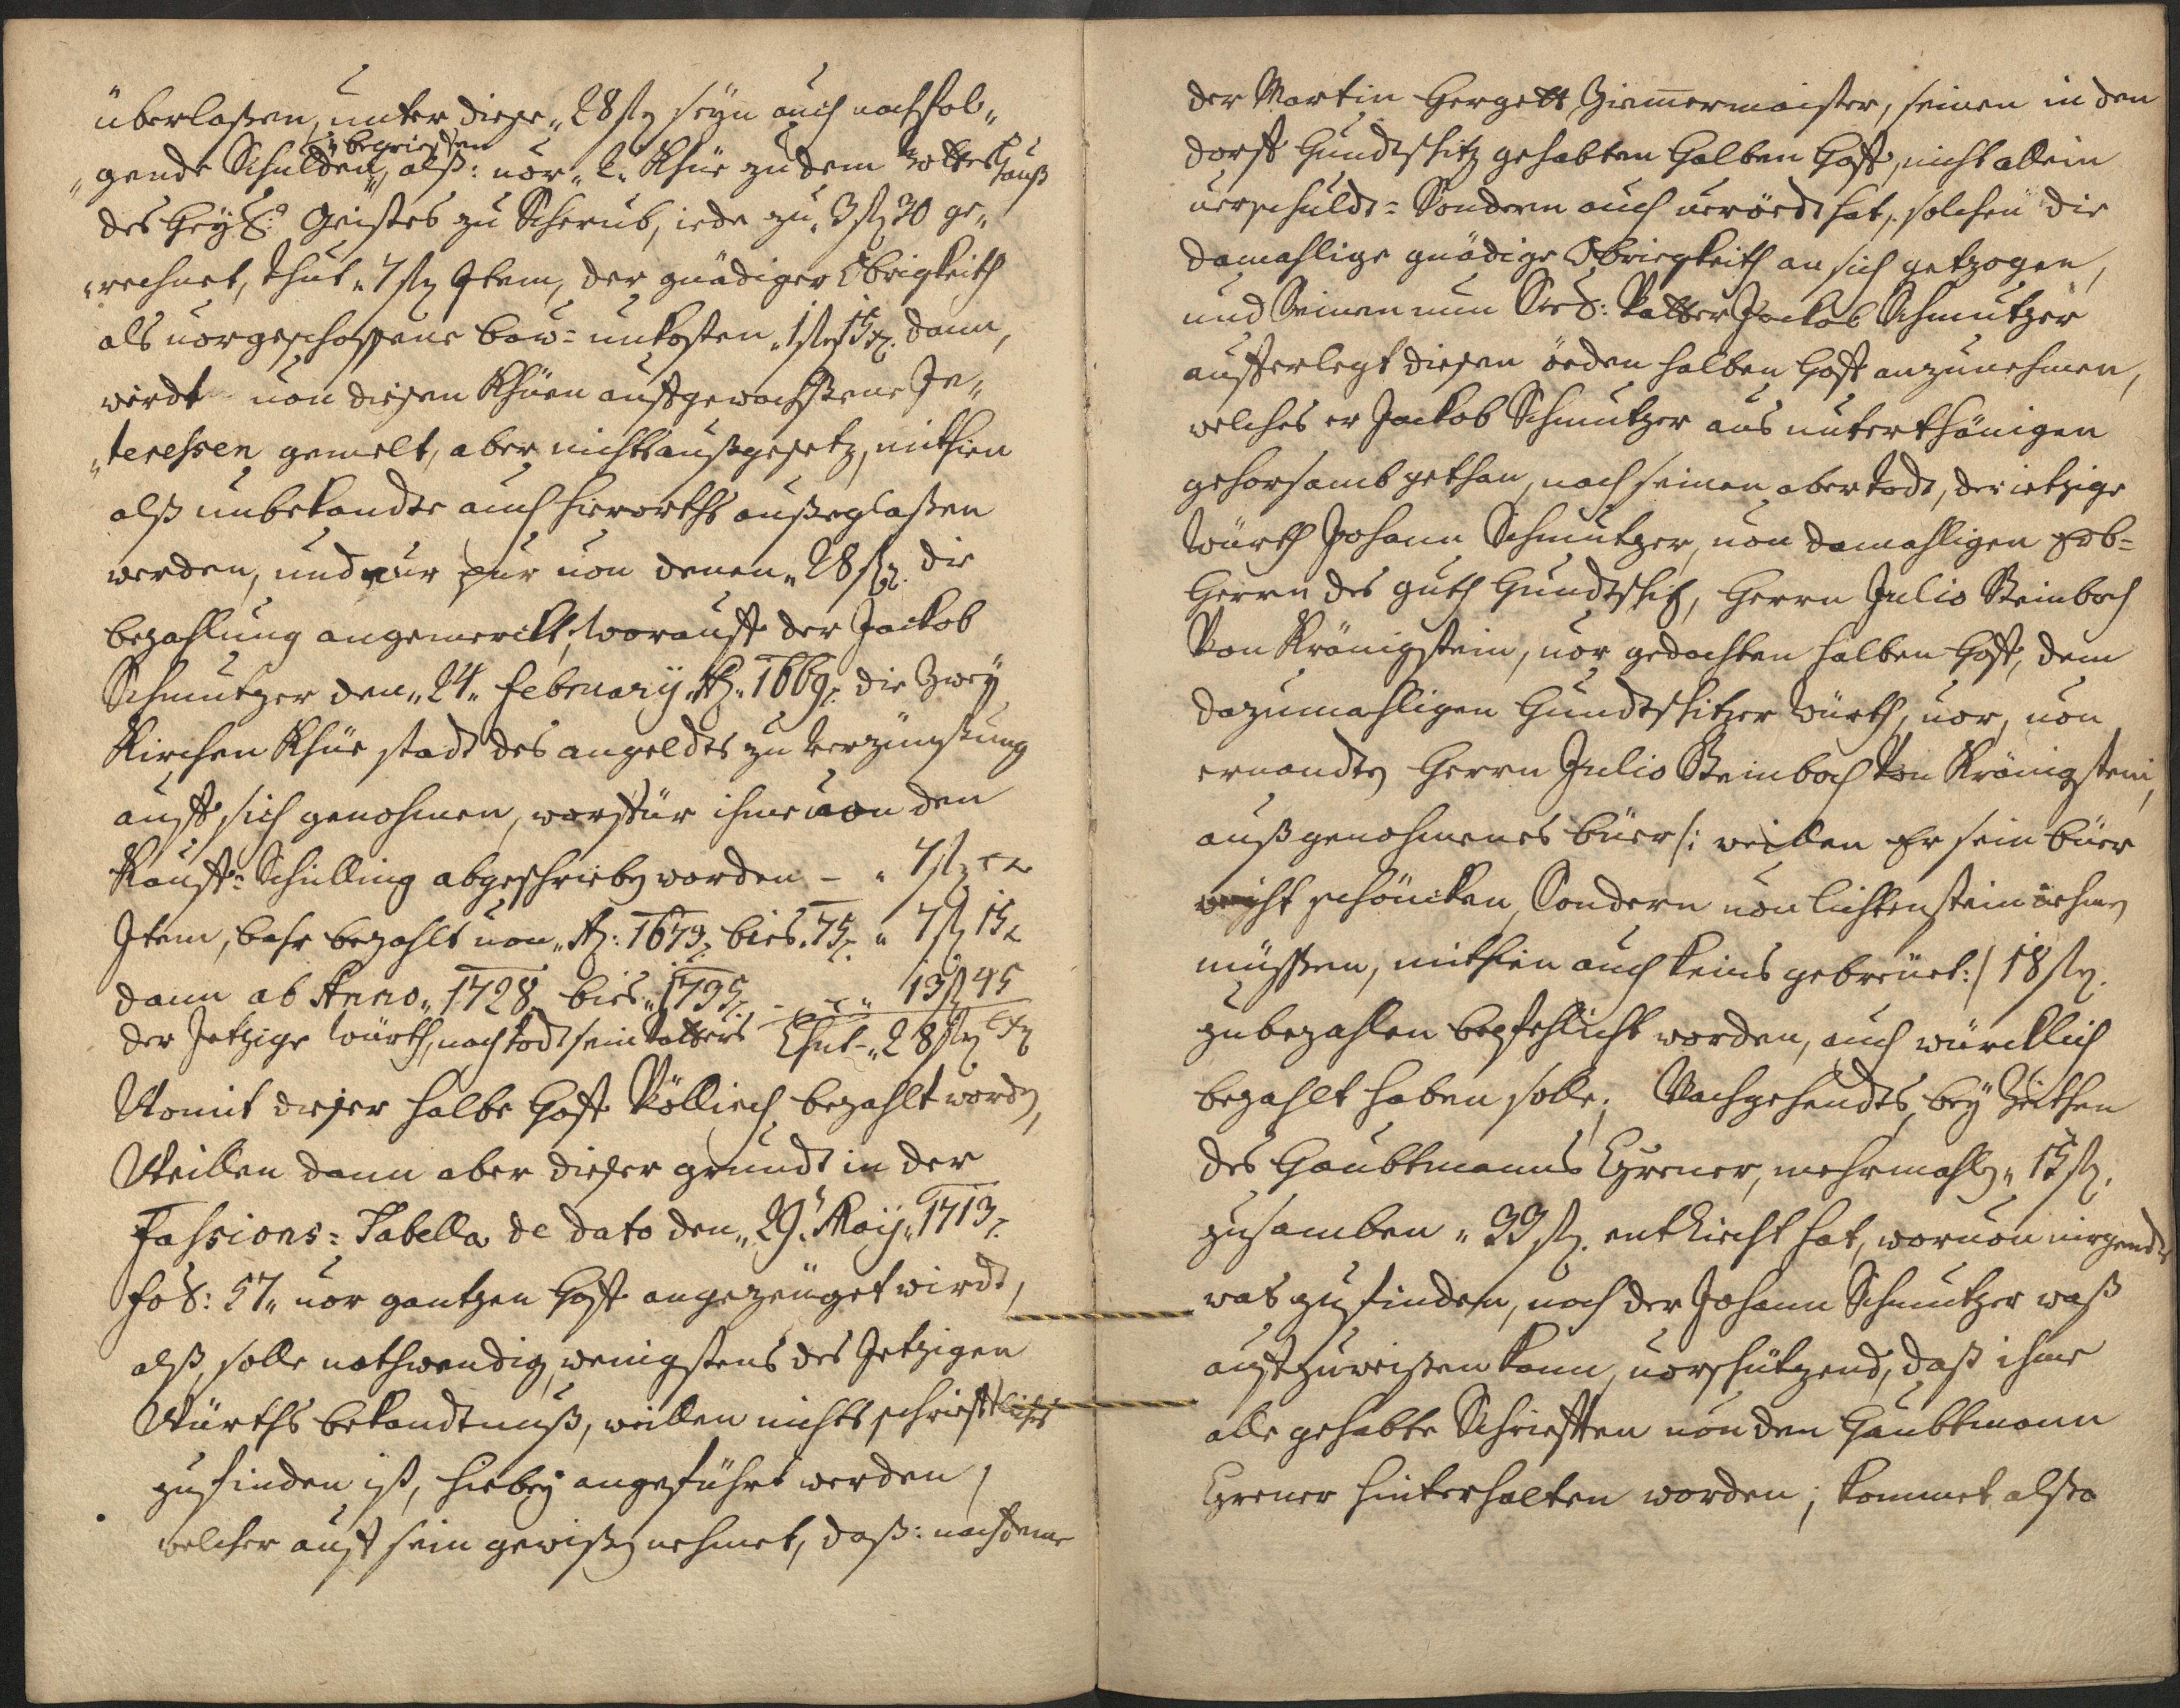 überlaßen, unter dieße „28 ßȝ seyn auch nachfol„
„gende Schulden, begrieffen alß: vor „2„ Khüe zu dem Gotteshauß
des Heyl: Geistes zu Scherub, iede zu „3 ßȝ 30 ge„
„rechnet, thut „7 ßȝ Item, der gnädigen Obrigkeith
als vorgeschoßene bow=unkosten „1 ßȝ 15 x. dann,
wirdt von dießen Khüen auffgewachßene In„
„teressen gemelt, aber nichts außgesetz, mithien
alß unbekandte auch hierorths außeglaßen
werden, und nur pur von denen „28 ßȝ. die
bezahlung angemerckt, worauff der Jackob
Schmutzer den „24„ February Aȝ. 1669. die Zwey
Kirchen Khüe stadt des angeldts zu Verzünßung
auff sich genohmen, worfür ihme von den
Kauff=Schilling abgeschrieben worden – „ 7 ßȝ
Item, bahr bezahlt von „Aȝ: 1673. bies „75. „ 7 ßȝ 15
dann ab Anno „1728 bies „1735. – „ 13 ßȝ 45
der Jetzige Würth, nach Todt sein Vatters Thut – „28 ßȝ
Womit dießer halbe Hoff Völliech bezahlt worden,
Weillen dann aber dießer grundt in der
Fassions=Tabella de dato den „29. Maij „1713.
fol: 57„ vor gantzen Hoff angezeüget wirdt,
alß, solle nothwendig, wenigstens des Jetzigen
Würths bekandtnuß, weillen nichts schrifftliches
zu finden ist, hiebey angeführt werden,
welcher auff sein gewißen nehmet, daß: nachdeme
der Martin Hergett Ziemermaister, seinen in den
dorff Gundtschitz gehabten Halben Hoff, nicht allein
verschuldt= Sondern auch veröedt hat, solchen die
damahlige gnädige Obriegkeith an sich getzogen,
und Seinen nun Seel: Vatter Jackob Schmutzer
aufferlegt dießen öeden halben Hoff anzunehmen,
welches er Jackob Schmutzer aus unterthänigen
gehorsamb gethan, nach seinen aber Todt, der ietzige
Würth Johann Schmutzer, von damahligen Erb=
Herrn des guth Gundtschitz, Herrn Julio Steinbach
Von Kränigstein, vor gedachten halben Hoff, dem
dazumahligen Gundtschitzer Würth, vor, von
ernandten Herrn Julio Steinbach Von Kränigstein,
außgenohmenes büer /: weillen Er sein büer
nicht schäncken, Sondern von Lichtenstein nehmen
müßen, mithien auch keins gebreüet :/ 18 ßȝ.
zu bezahlen befehlicht worden, auch würcklich
bezahlt haben solle; Nachgehendts, bey Zeithen
des Haubtmanns Egrener, mehrmahlen „15 ßȝ.
zusamben „33 ßȝ. entriecht hat, worvon nirgendts
was zu finden, noch der Johann Schmutzer waß
auffzuweißen kann, vorschützend, daß ihme
alle gehabte Schriefften von den Haubtmann
Egrener hinterhalten worden; kommet alßo